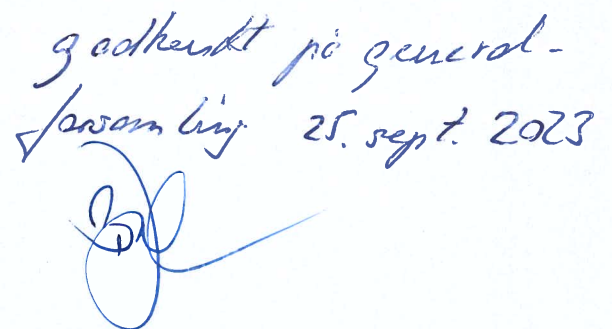 godkendt på general-
forsamling 25. sept. 2023